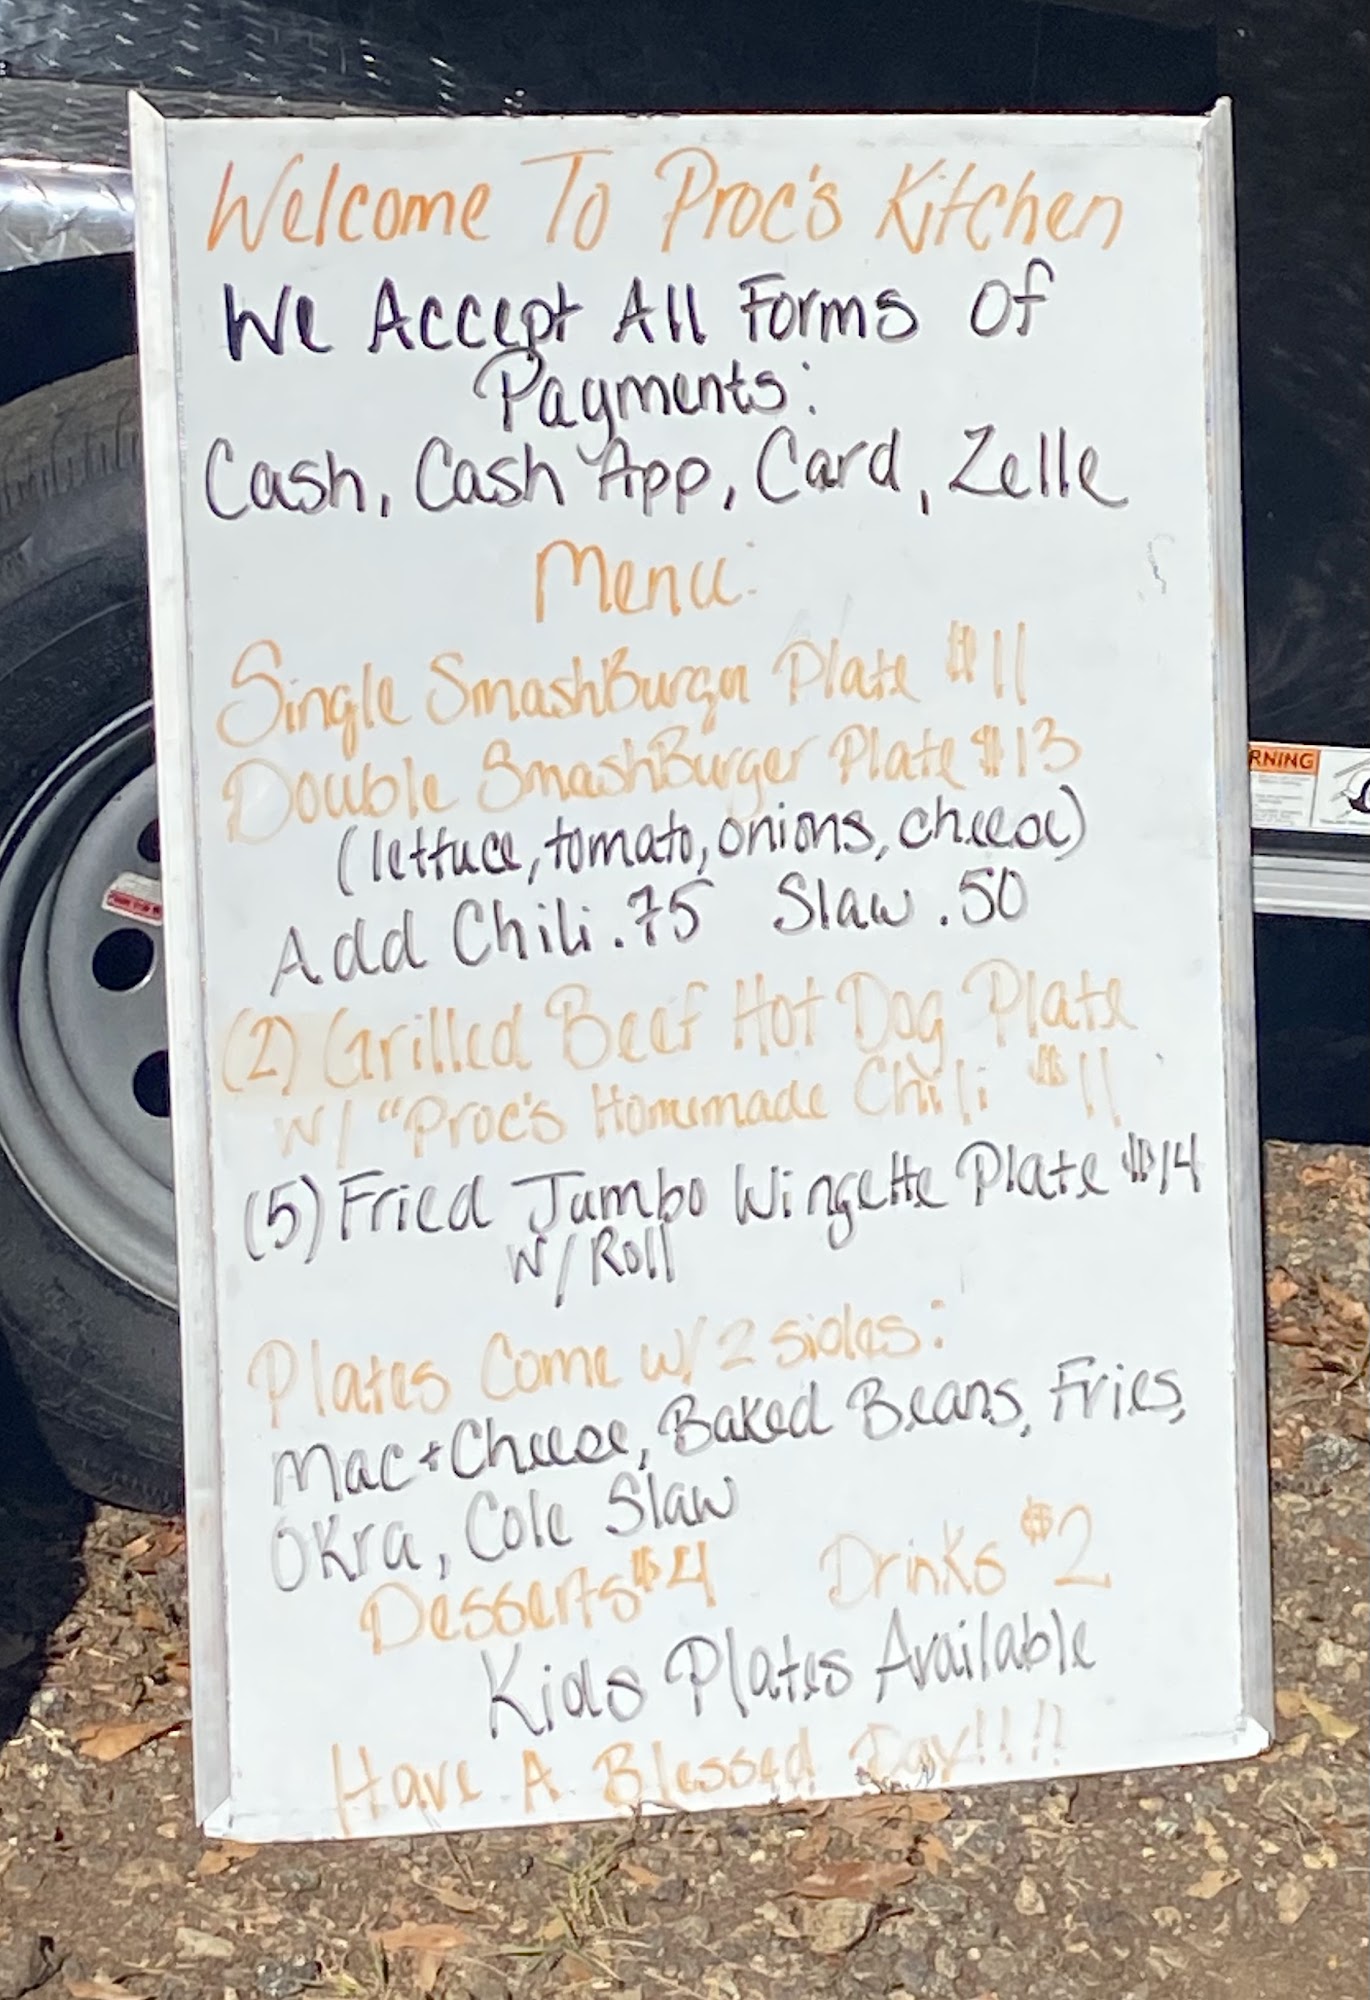 Welcome To Proc's Kitchen
We Accept All Forms Of
Payments:
Cash, Cash App, Card, Zelle
Menu:
Single SmashBurger Plate $11
Double SmashBurger Plate $13
(lettuce, tomato, onions, cheese)
Add Chili .75 Slaw .50
(2) Grilled Beef Hot Dog Plate
w/ "Proc's Homemade Chili $11
(5) Fried Jumbo Wingette Plate $14
w/Roll
Plates Come w/ 2 sides:
Mac+Cheese, Baked Beans, Fries,
Okra, Cole Slaw
Desserts $4 Drinks $2
Kids Plates Available
Have A Blessed Day!!!!
RNING